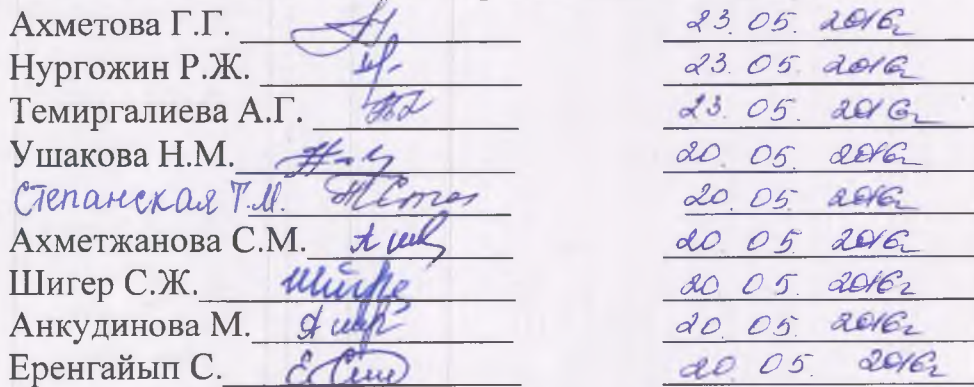 Ахметова Г.Г. 23. 05. 2016г
Нургожин Р.Ж. 23. 05. 2016г
Темиргалиева А.Г. 23. 05. 2016г
Ушакова Н.М. 20. 05. 2016г
Степанская Т.М. 20. 05. 2016г
Ахметжанова С.М. 20. 05. 2016г
Шигер С.Ж. 20. 05. 2016г
Анкудинова М. 20. 05. 2016г
Еренгайып С. 20. 05. 2016г